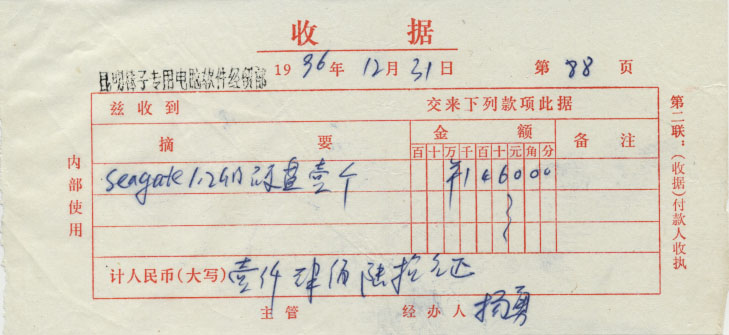 收据
1996年12月31日 第88页
兹收到 交来下列款项此据
摘要 金额 备注
百十万千百十元角分
Seagate 1.2GB 硬盘壹个 ¥146000
计人民币(大写)壹仟肆佰陆拾元正
主管 经办人 杨勇
内部使用
第二联:(收据)付款人收执